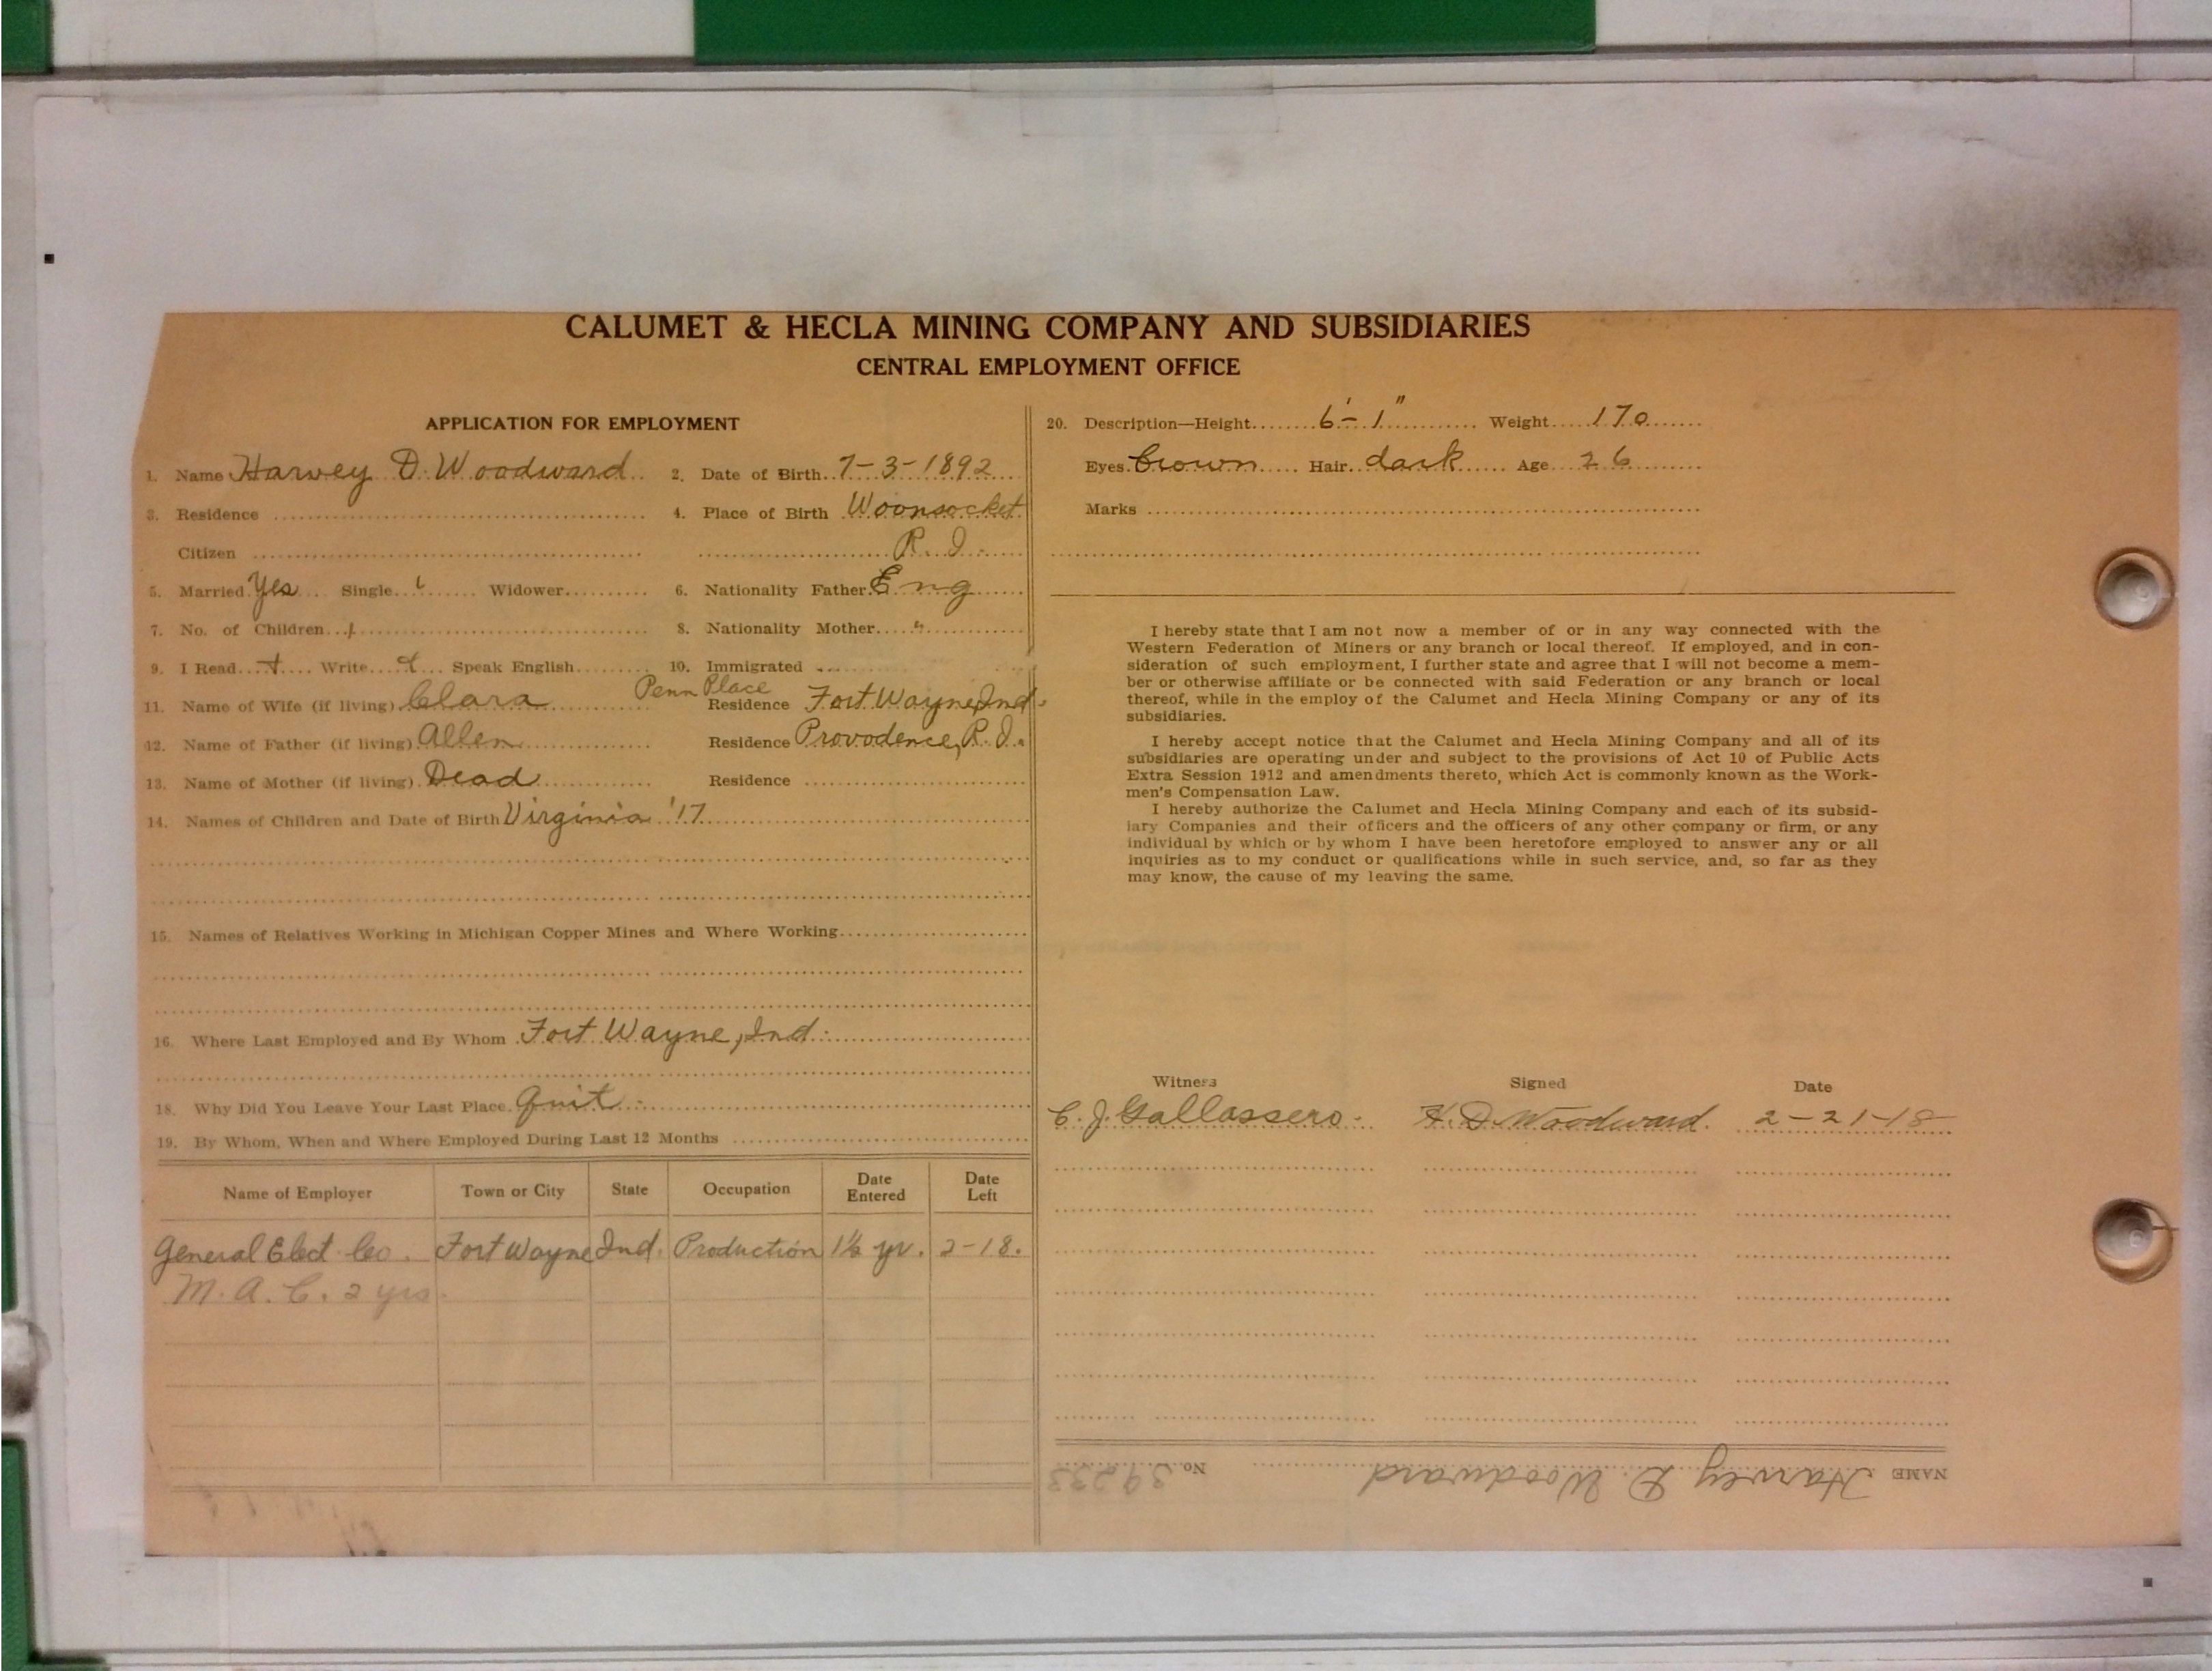 CALUMET & HECLA MINING COMPANY AND SUBSIDIARIES
CENTRAL EMPLOYMENT OFFICE
APPLICATION FOR EMPLOYMENT
1. Name Harvey D. Woodward 2. Date of Birth 7-3-1892
3. Residence 4. Place of Birth Woonsocket
Citizen R. I.
5. Married Yes Single Widower 6. Nationality Father Eng
7. No. of Children 1 8. Nationality Mother "
9. I Read Write Speak English 10. Immigrated
11. Name of Wife (if living) Clara Penn Place Residence Fort Wayne, Ind.
12. Name of Father (if living) Allen Residence Provodence, R. I.
13. Name of Mother (if living) Dead Residence
14. Names of Children and Date of Birth Virginia '17
15. Names of Relatives Working in Michigan Copper Mines and Where Working
16. Where Last Employed and By Whom Fort Wayne, Ind.
18. Why Did You Leave Your Last Place Quit
19. By Whom, When and Where Employed During Last 12 Months
Name of Employer Town or City State Occupation Date Entered Date Left
General Elect Co. Fort Wayne Ind. Production 1½ yr. 2-18.
M. A. C. 2 yrs.
20. Description—Height 6'-1" Weight 170
Eyes brown Hair dark Age 26
Marks
I hereby state that I am not now a member of or in any way connected with the
Western Federation of Miners or any branch or local thereof. If employed, and in con-
sideration of such employment, I further state and agree that I will not become a mem-
ber or otherwise affiliate or be connected with said Federation or any branch or local
thereof, while in the employ of the Calumet and Hecla Mining Company or any of its
subsidiaries.
I hereby accept notice that the Calumet and Hecla Mining Company and all of its
subsidiaries are operating under and subject to the provisions of Act 10 of Public Acts
Extra Session 1912 and amendments thereto, which Act is commonly known as the Work-
men's Compensation Law.
I hereby authorize the Calumet and Hecla Mining Company and each of its subsid-
iary Companies and their officers and the officers of any other company or firm, or any
individual by which or by whom I have been heretofore employed to answer any or all
inquiries as to my conduct or qualifications while in such service, and, so far as they
may know, the cause of my leaving the same.
Witness Signed Date
C. J. Gallassero H. D. Woodward. 2-21-18
NAME Harvey D. Woodward No. 39233